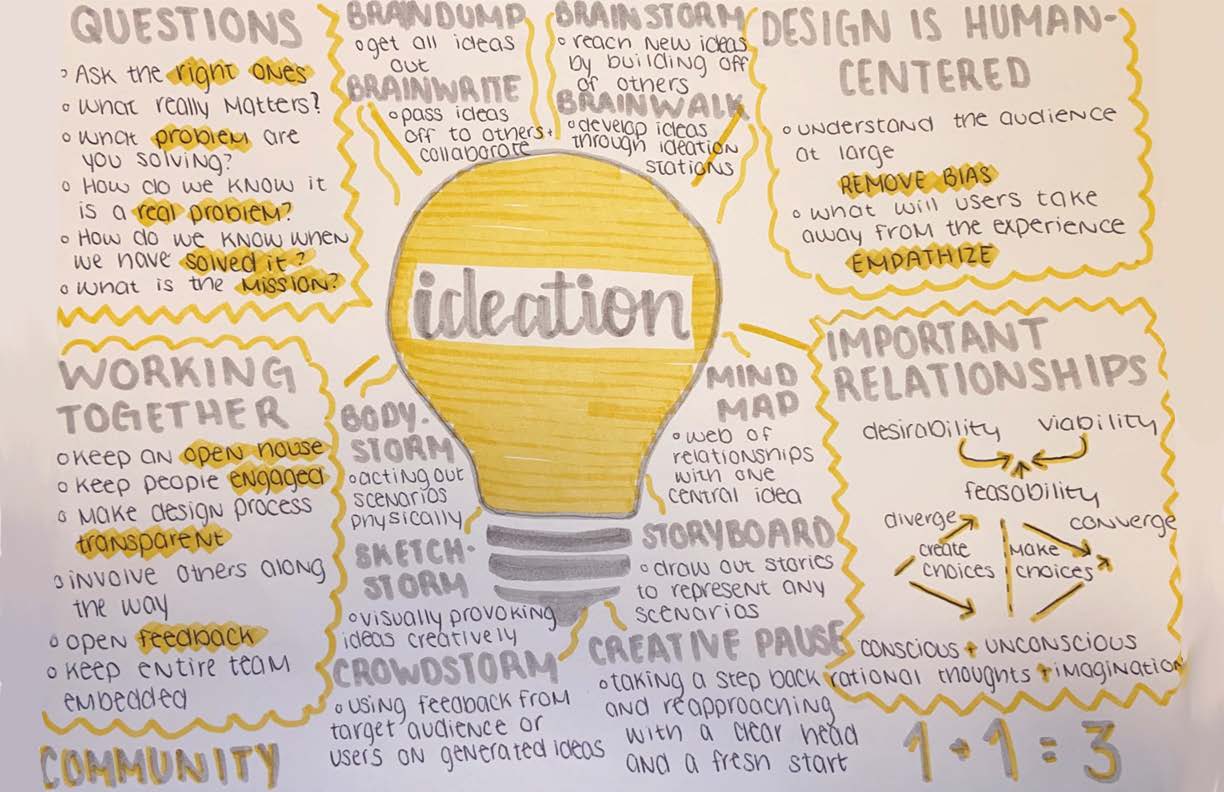 QUESTIONS
◦ Ask the right ones
◦ what really matters?
◦ what problem are
you solving?
◦ How do we know it
is a real problem?
◦ How do we know when
we have solved it?
◦ what is the mission?
BRAINDUMP
◦ get all ideas
out
BRAINWRITE
◦ pass ideas
off to others +
collaborate
BRAINSTORM
◦ reach new ideas
by building off
of others
BRAINWALK
◦ develop ideas
through ideation
stations
DESIGN IS HUMAN-
CENTERED
◦ understand the audience
at large
REMOVE BIAS
◦ what will users take
away from the experience
EMPATHIZE
ideation
WORKING
TOGETHER
◦ keep an open house
◦ keep people engaged
◦ make design process
transparent
◦ involve others along
the way
◦ open feedback
◦ keep entire team
embedded
COMMUNITY
BODY-
STORM
◦ acting out
scenarios
physically
SKETCH-
STORM
◦ visually provoking
ideas creatively
CROWDSTORM
◦ using feedback from
target audience or
users on generated ideas
MIND
MAP
◦ web of
relationships
with one
central idea
STORYBOARD
◦ draw out stories
to represent any
scenarios
CREATIVE PAUSE
◦ taking a step back
and reapproaching
with a clear head
and a fresh start
IMPORTANT
RELATIONSHIPS
desirability viability
feasability
diverge converge
create make
choices choices
conscious + unconscious
rational thoughts + imagination
1 + 1 = 3